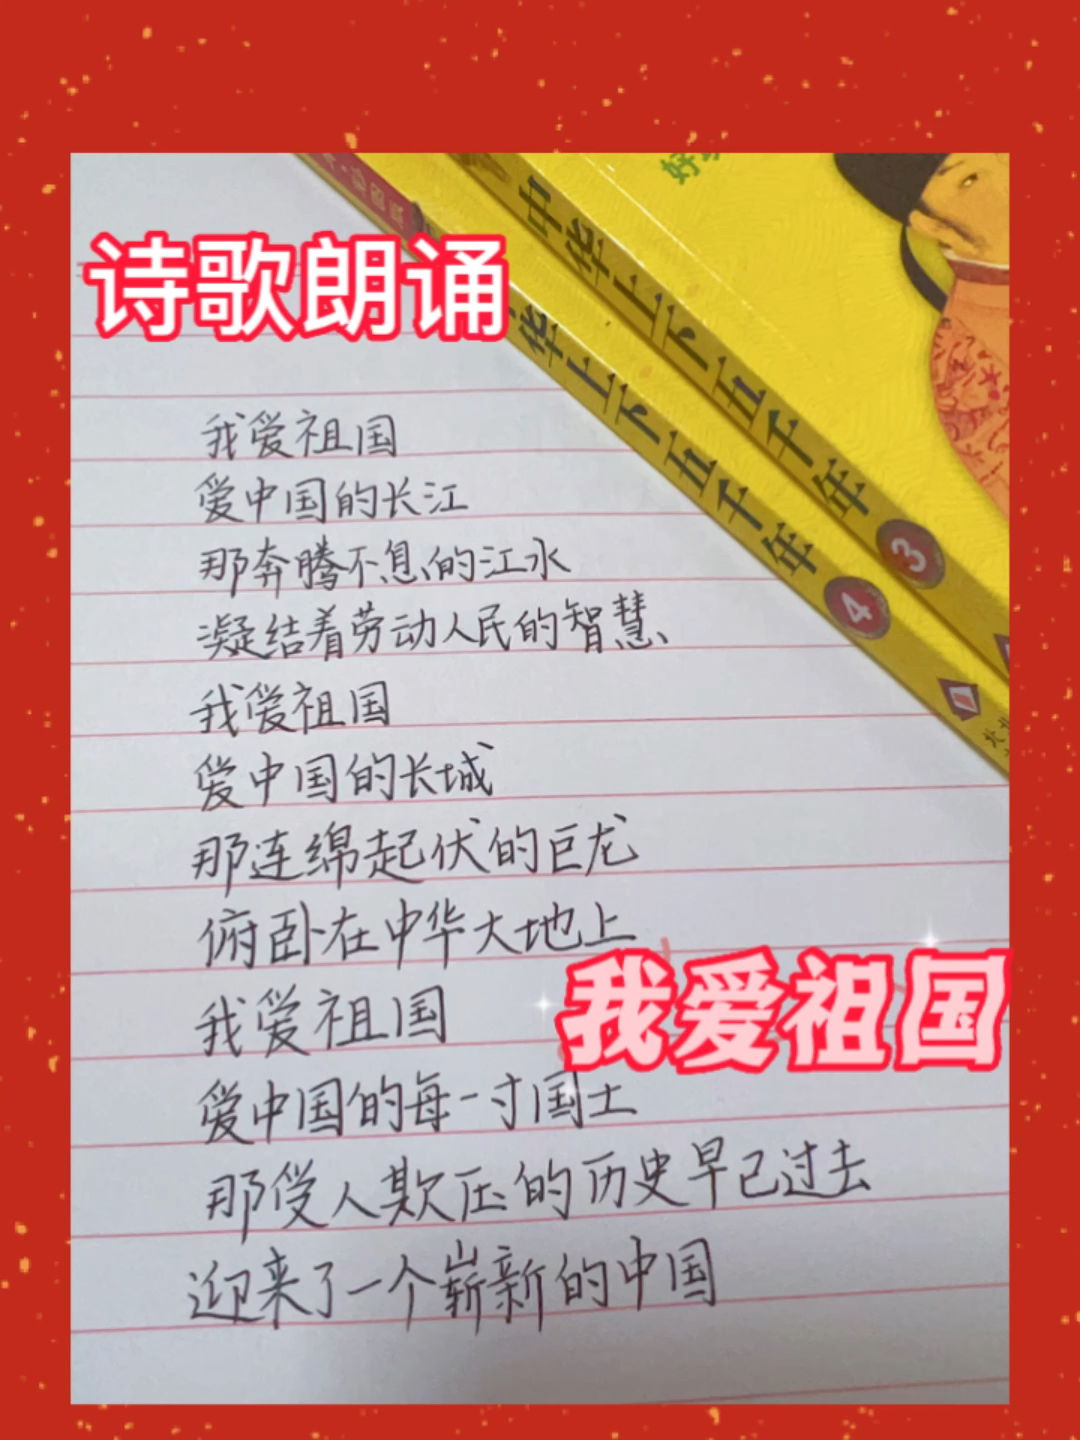 诗歌朗诵
中华上下五千年
3
华上下五千年
4
我爱祖国
爱中国的长江
那奔腾不息的江水
凝结着劳动人民的智慧
我爱祖国
爱中国的长城
那连绵起伏的巨龙
俯卧在中华大地上
我爱祖国
我爱祖国
爱中国的每一寸国土
那受人欺压的历史早已过去
迎来了一个崭新的中国